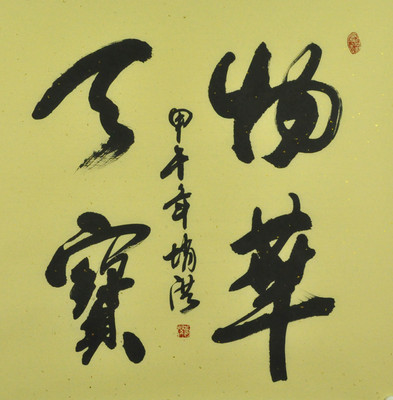 物華
天寶
甲午年 洪